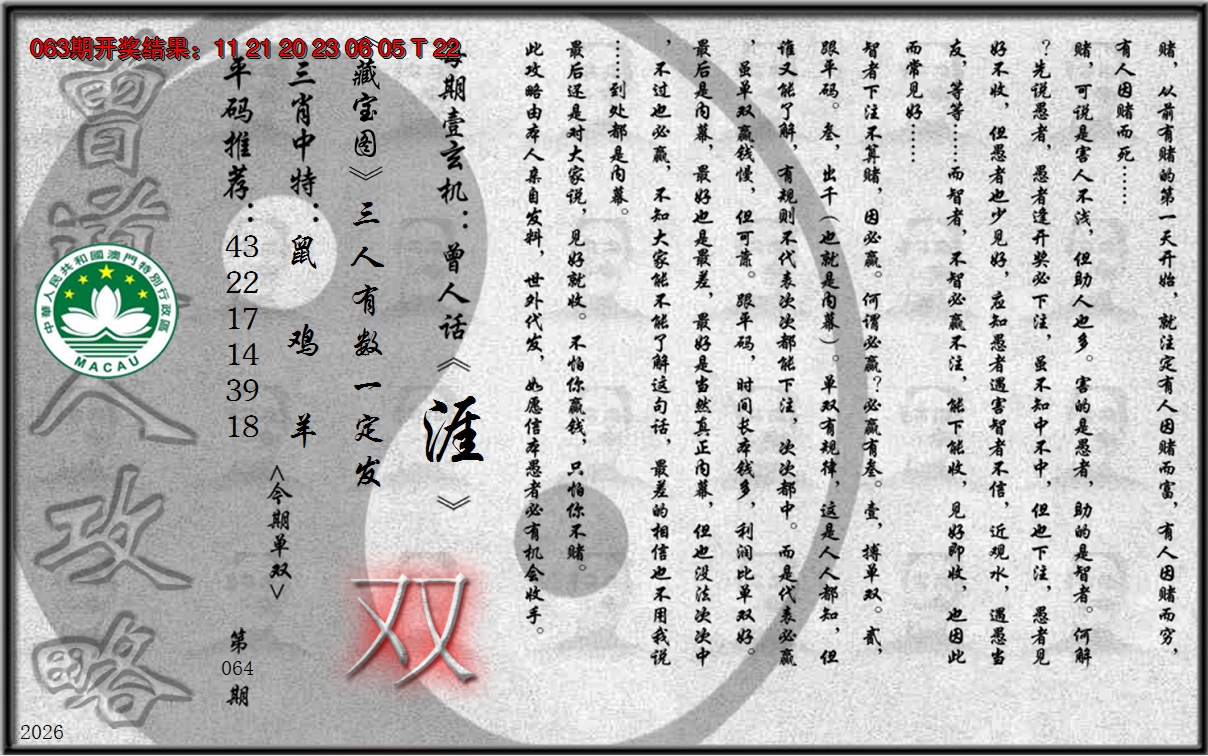 063期开奖结果：11 21 20 23 06 05 T 22
赌，从前有赌的第一天开始，就注定有人因赌而富，有人因赌而穷，
有人因赌而死……
赌，可说是害人不浅，但助人也多。害的是愚者，助的是智者。何解
？先说愚者，愚者逢开奖必下注，虽不知中不中，但也下注，愚者见
好不收，但愚者也少见好，应知愚者遇害智者不信，近观水，遇愚当
友，等等……而智者，不智必赢不注，能下能收，见好即收，也因此
而常见好……
智者下注不算赌，因必赢。何谓必赢？必赢有叁。壹，搏单双。贰，
跟平码。叁，出千（也就是内幕）。单双有规律，这是人人都知，但
谁又能了解，有规则不代表次次都能下注，次次都中。而是代表必赢
，虽单双赢钱慢，但可靠。跟平码，时间长本钱多，利润比单双好。
最后是内幕，最好也是最差，最好是当然真正内幕，但也没法次次中
，不过也必赢，不知大家能不能了解这句话，最差的相信也不用我说
……到处都是内幕。
最后还是对大家说，见好就收。不怕你赢钱，只怕你不赌。
此攻略由本人亲自发料，世外代发，如愿信本愚者必有机会收手。
每期壹玄机：曾人话《涯》
《藏宝图》三人有数一定发
双
三肖中特：鼠 鸡 羊
<今期单双>
平码推荐：43 22 17 14 39 18
第064期
曾道人攻略
中華人民共和國澳門特別行政區
MACAU
2026